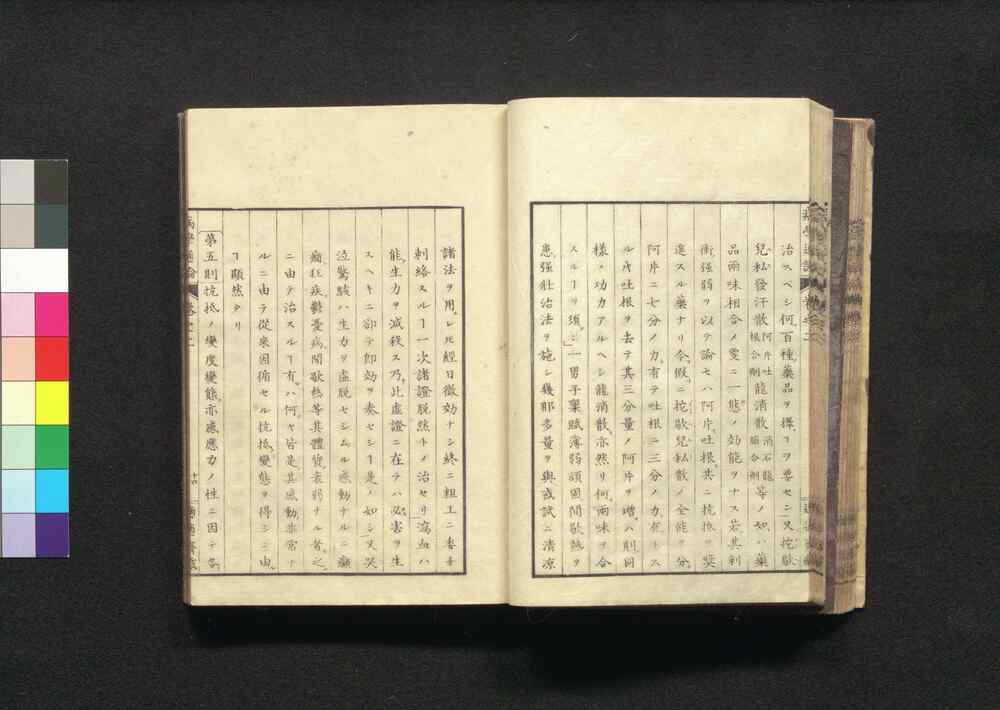 治スベシ何百種藥品ヲ擇ヿヲ要センヤ又抱歇
兒私發汗散阿片吐根合劑龍消散消石龍腦合劑等ノ如ハ藥
品兩味相合メ更ニ一態ノ効能ヲナス若其刺
衝強弱ヲ以テ論セハ阿片吐根共ニ抗抵ヲ奬
進スル藥ナリ今假ニ抱歇兒私散ノ全能ヲ分
阿片ニ七分ノ力有テ吐根ニ三分ノ力在トス
ル片吐根ヲ去テ其三分量ノ阿片ヲ増ハ則同
樣ノ功力アルヘシ龍消散亦然リ何兩味ヲ合
スルヿヲ須ン一男子稟賦薄弱頑固間歇熱ヲ
患強壯治法ヲ施シ幾那多量ヲ與或試ニ清凉
諸法ヲ用レ𪜈經日徴効ナシ終ニ粗工ニ委子
刺絡スルヿ一次諸證脱然トメ治セリ瀉血ハ
能生力ヲ減殺ス乃此虚證ニ在テハ必害ヲ生
スヘキニ卻テ即効ヲ奏セシヿ是ノ如シ又哭
泣驚駭ハ生力ヲ虚脱セシムル感動ナルニ癲
癇狂疾鬱憂病間歇熱等其體質衰弱ナル者之
ニ由テ治スルヿ有ハ何ヤ皆是其感動非常ナ
ルニ由テ從來因循セル抗抵變態ヲ得シニ由
ヿ顯然タリ
第五則抗抵ノ變度變態亦感應力ノ性ニ因テ各
病學通論